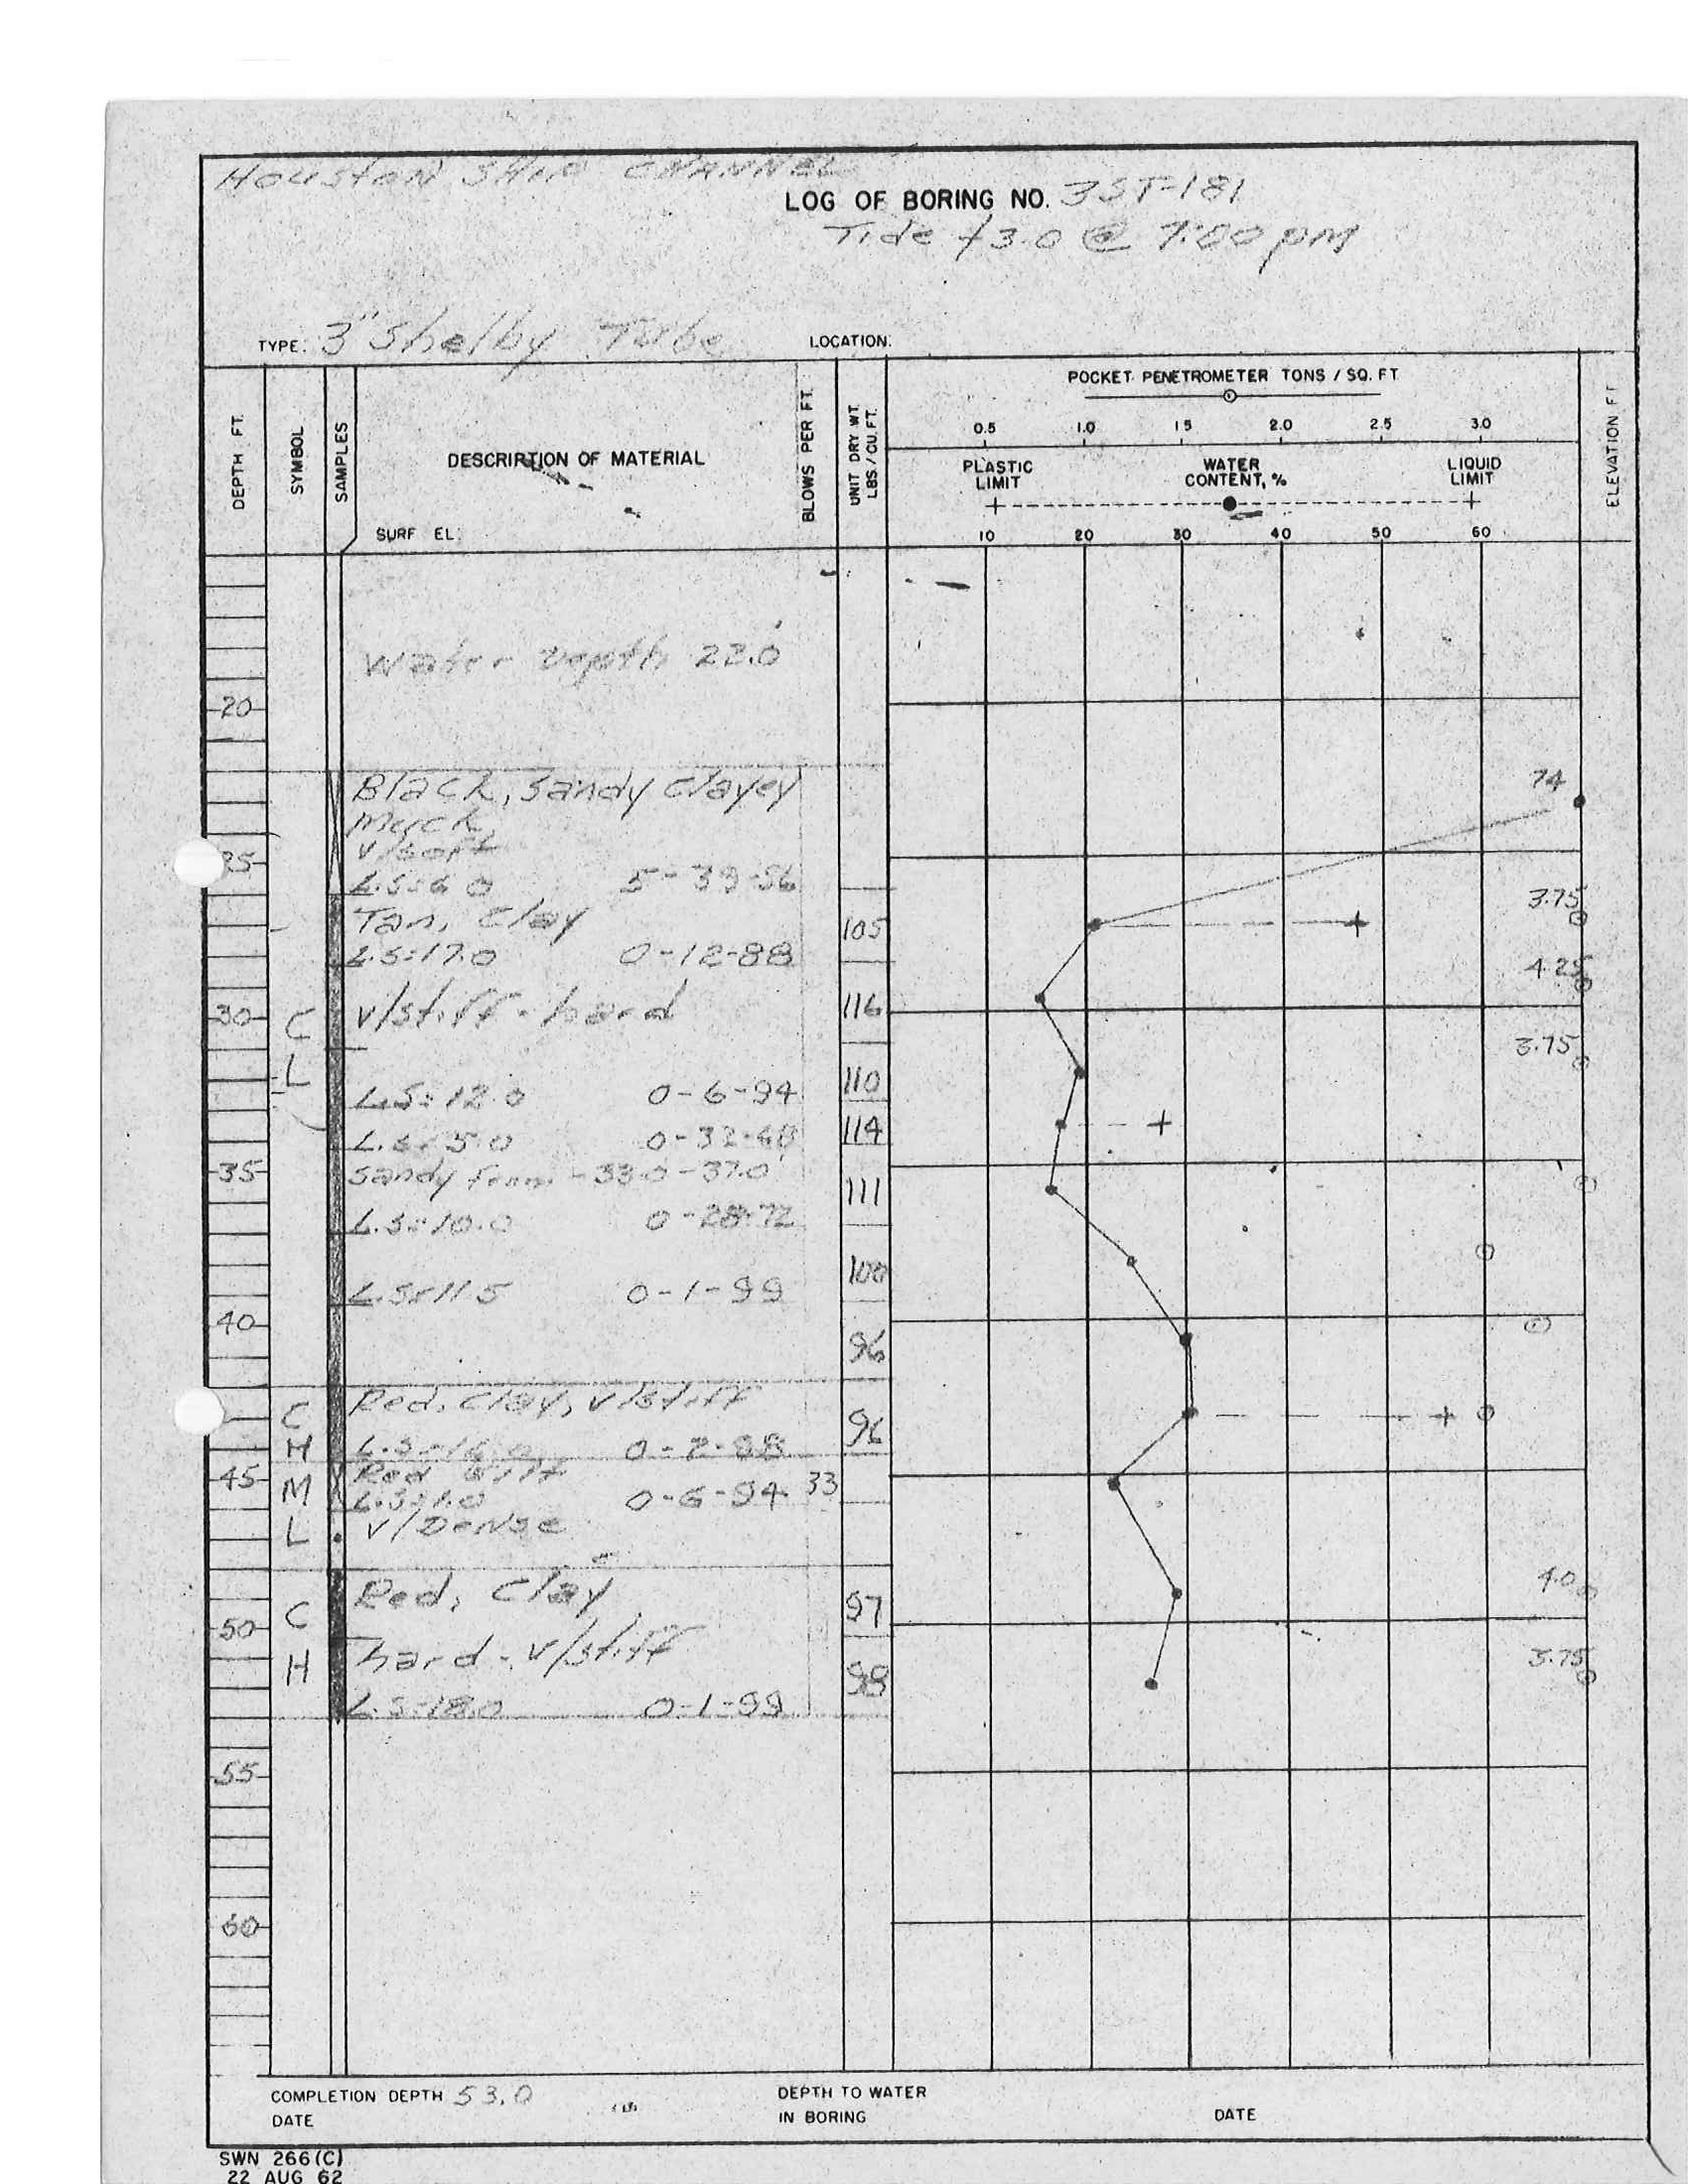 HOUSTON SHIP CHANNEL
LOG OF BORING NO. 3ST-181
Tide +3.0 @ 7:00 pm
TYPE: 3" Shelby Tube LOCATION:
DEPTH FT.
SYMBOL
SAMPLES
DESCRIPTION OF MATERIAL
SURF EL:
BLOWS PER FT.
UNIT DRY WT. LBS./CU.FT.
POCKET PENETROMETER TONS / SQ. FT
0.5 1.0 1.5 2.0 2.5 3.0
PLASTIC LIMIT
WATER CONTENT, %
LIQUID LIMIT
+ +
10 20 30 40 50 60
ELEVATION FT
Water Depth 22.0'
20
Black, Sandy Clayey 74
Muck,
v/soft
25
L.S=6.0 5-39-56
3.75
Tan, Clay 105 +
L.S=17.0 0-12-88
4.25
30 C v/stiff - hard 116
3.75
L 110
L.S=12.0 0-6-94
L.S=5.0 0-32-68 114 +
35 Sandy from -33.0-37.0'
111
L.S=10.0 0-28-72
100
L.S=11.5 0-1-99
40
96
Red, Clay, v/stiff
C 96 +
H L.S=16.0 0-2-98
45 Red Silt
M L.S=1.0 0-6-94 33
L v/Dense
Red, Clay 4.0
C 97
50
hard - v/stiff 3.75
H 98
L.S=18.0 0-1-99
55
60
COMPLETION DEPTH 53.0 DEPTH TO WATER
DATE IN BORING DATE
SWN 266(C)
22 AUG 62